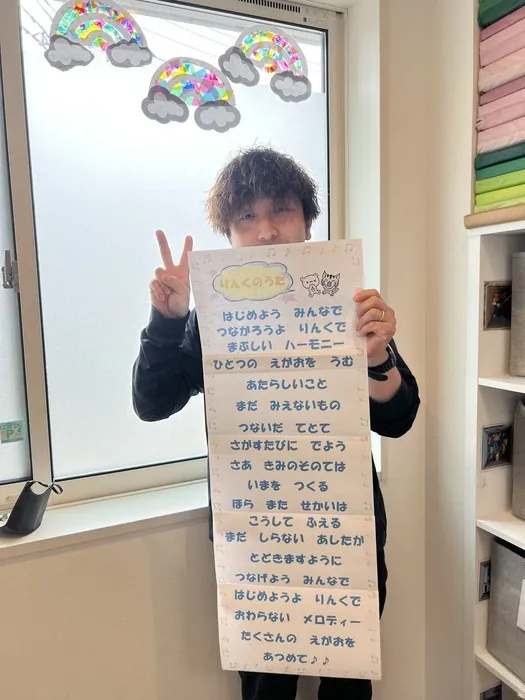 りんくのうた
はじめよう みんなで
つながろうよ りんくで
まぶしい ハーモニー
ひとつの えがおを うむ
あたらしいこと
まだ みえないもの
つないだ てとて
さがすたびに でよう
さあ きみのそのては
いまを つくる
ほら また せかいは
こうして ふえる
まだ しらない あしたが
とどきますように
つなげよう みんなで
はじめようよ りんくで
おわらない メロディー
たくさんの えがおを
あつめて♪♪